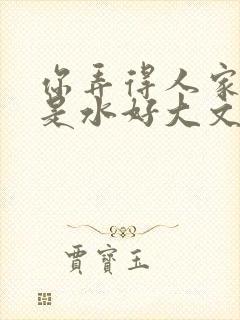 你弄得人家
是水好大文
賈寶玉